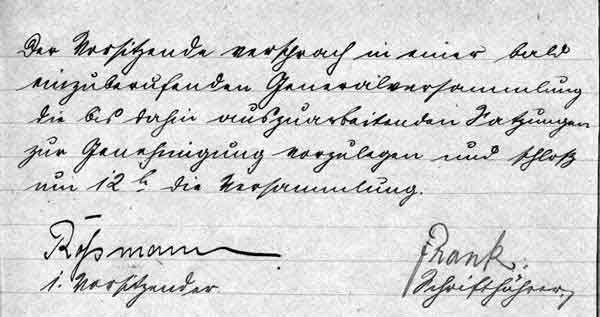 Der Vorsitzende versprach in einer bald
einzuberufenden Generalversammlung
die bis dahin auszuarbeitenden Satzungen
zur Genehmigung vorzulegen und schloß
um 12 h die Versammlung.
Roßmann Frank.
1. Vorsitzender Schriftführer.